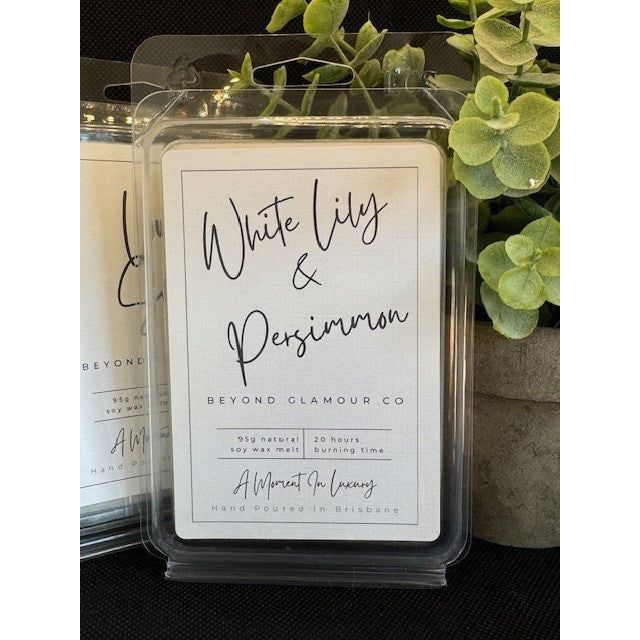 White Lily
&
Persimmon
BEYOND GLAMOUR CO
95g natural
soy wax melt
20 hours
burning time
A Moment In Luxury
Hand Poured In Brisbane
BEYOND
95g na
soy wax
A M
Hand Po